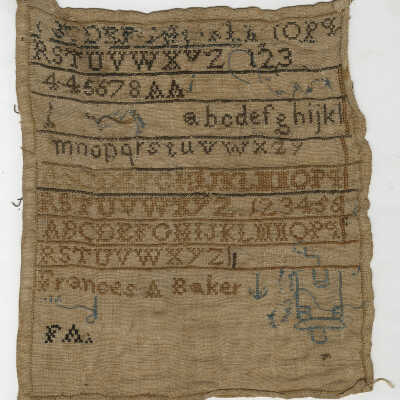 OPQ
RSTUVWXYZ 123
445678AA
abcdefghijkl
mnopqrstuvwxzy
ABCDEFGHIJKLMNOPQ
RSTUVWXYZ 123456
ABCDEFGHIJKLMNOPQ
RSTUVWXYZ
Frances A Baker
FA